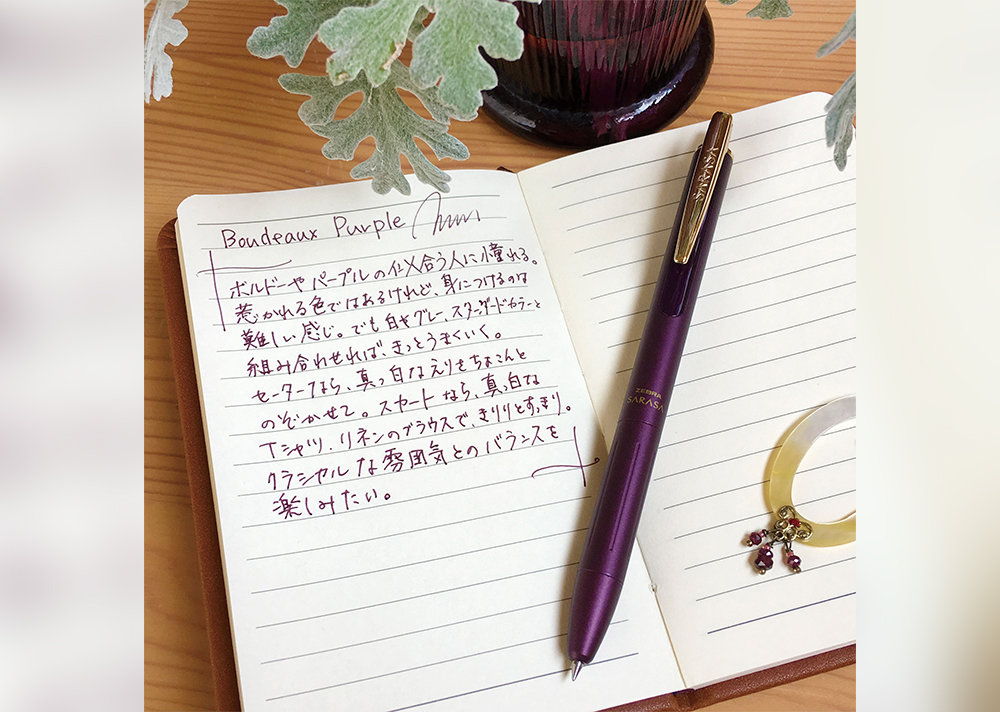 Boudeaux Purple
ボルドーやパープルの似合う人に憧れる。
惹かれる色ではあるけれど、身につけるのは
難しい感じ。でも白やグレー、スタンダードカラーと
組み合わせれば、きっとうまくいく。
セーターなら、真っ白なえりをちょこんと
のぞかせて。スカートなら、真っ白な
Tシャツ、リネンのブラウスで、きりりとすっきり。
クラシカルな雰囲気とのバランスを
楽しみたい。
SARASA
ZEBRA
SARASA